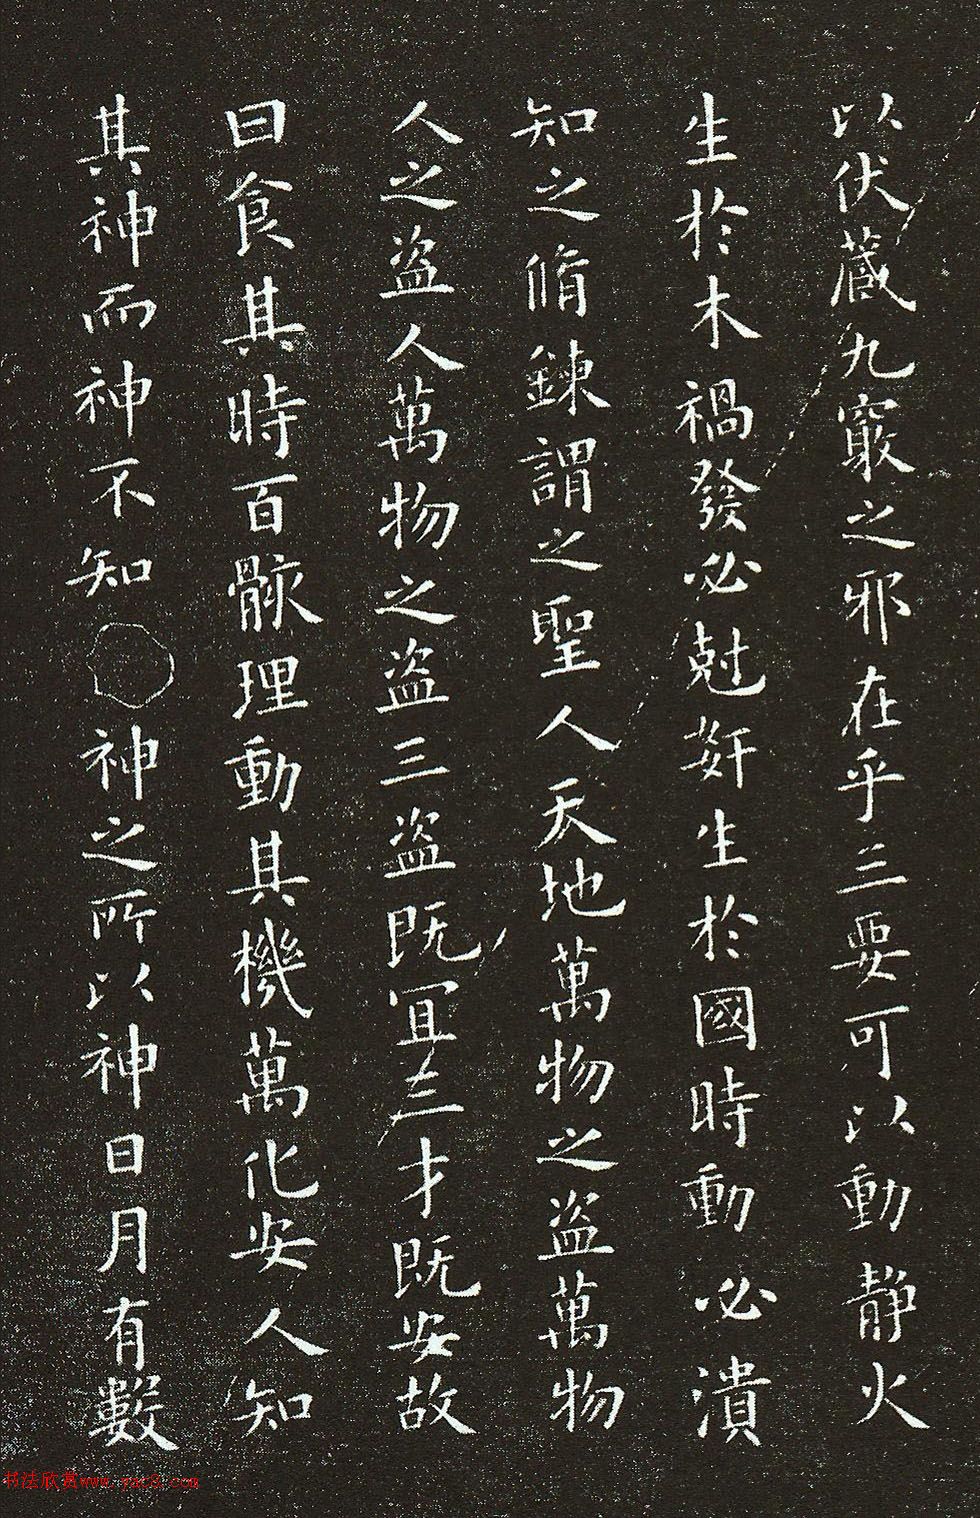 以伏藏九竅之邪在乎三要可以動靜火
生於木禍發必尅姧生於國時動必潰
知之脩鍊謂之聖人天地萬物之盜萬物
人之盜人萬物之盜三盜既冝三才既安故
曰食其時百骸理動其機萬化安人知
其神而神不知神之所以神日月有數
书法欣赏www.yac8.com